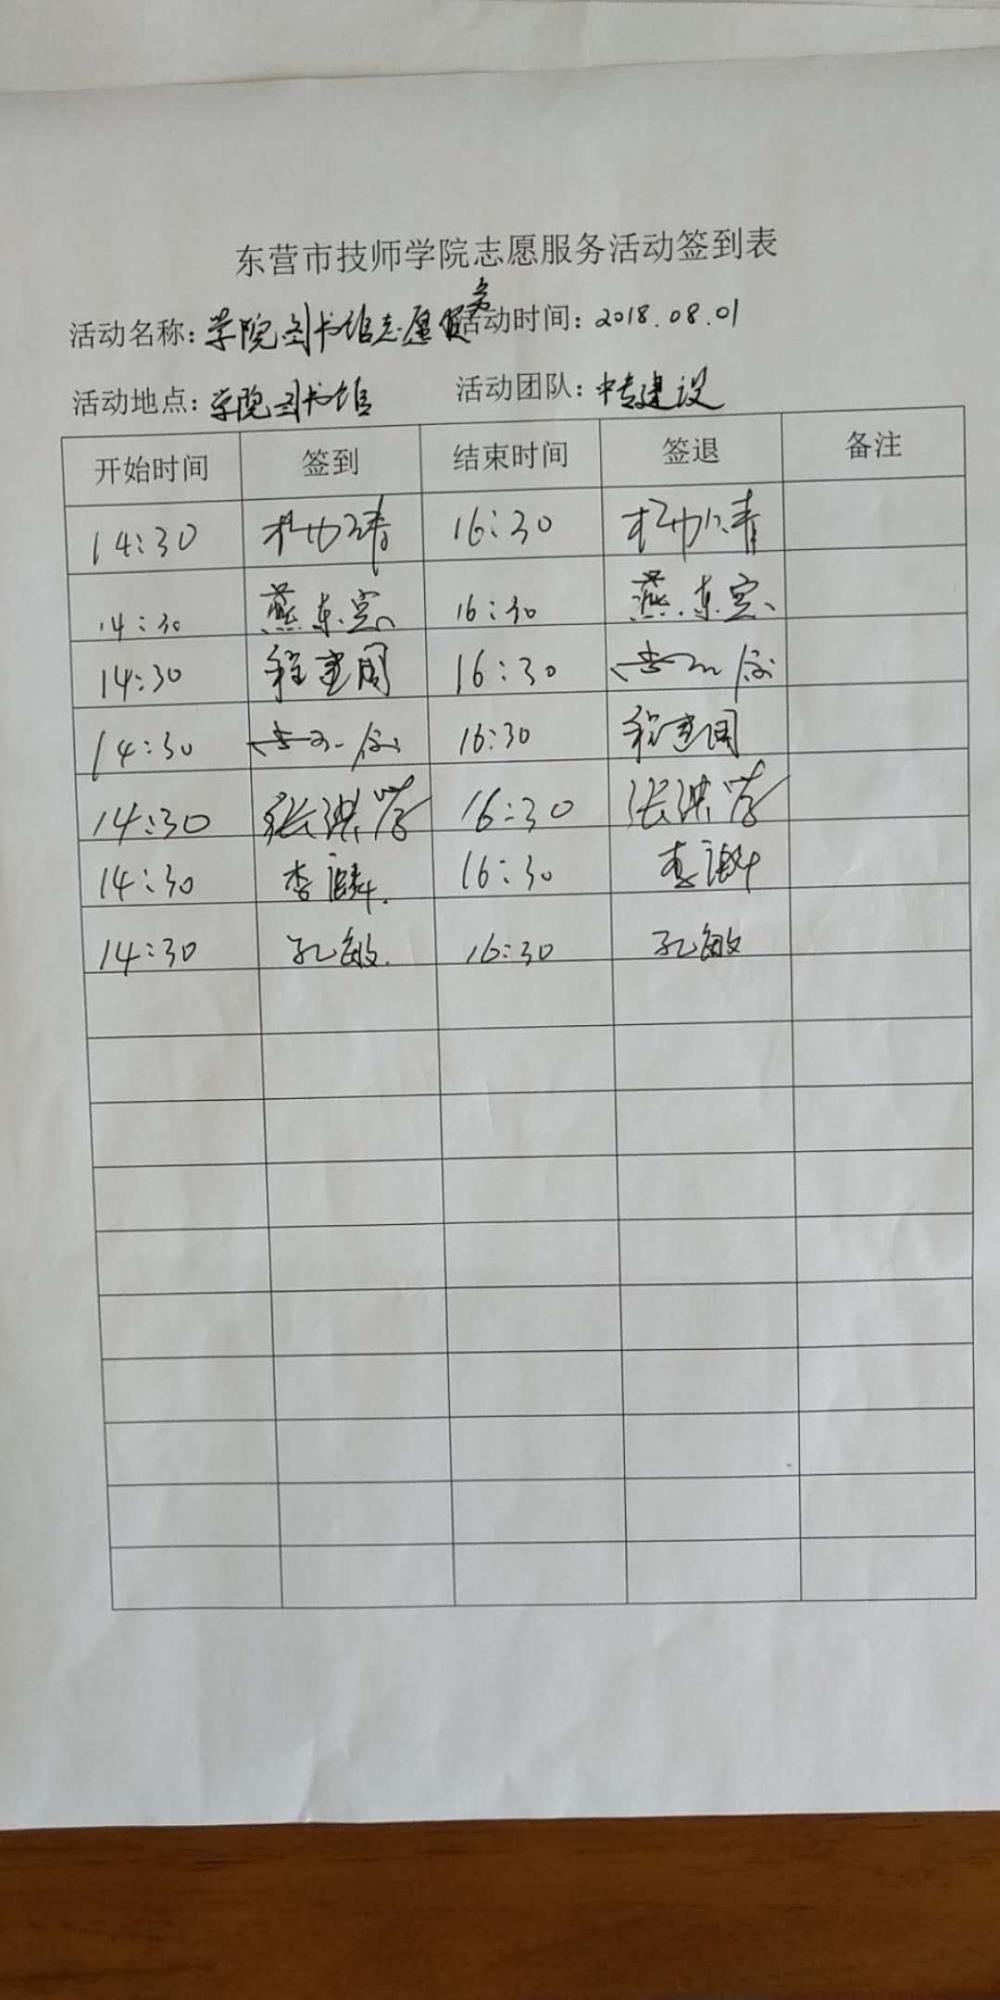 东营市技师学院志愿服务活动签到表
活动名称：学院图书馆志愿服务 活动时间：2018.08.01
活动地点：学院图书馆 活动团队：中专建设
开始时间 签到 结束时间 签退 备注
14:30 16:30
14:30 燕东宾 16:30 燕东宾
14:30 程建国 16:30
14:30 16:30 程建国
14:30 张洪营 16:30 张洪营
14:30 李麟 16:30 李麟
14:30 孔敏 16:30 孔敏